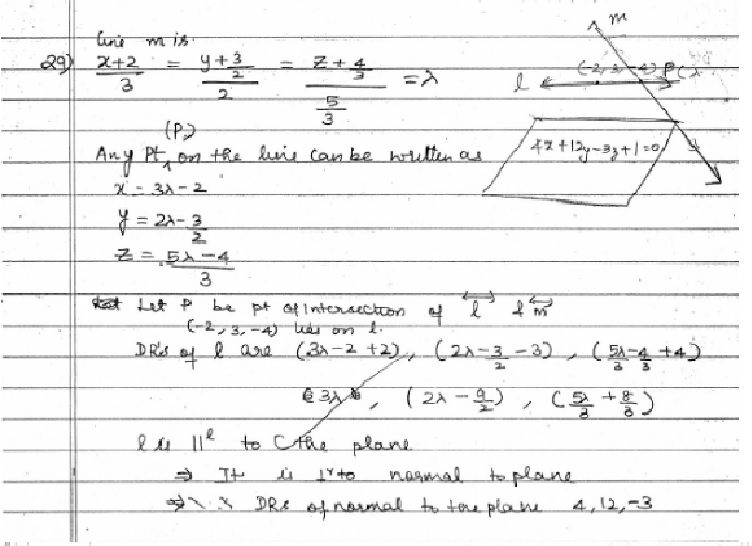 line m is.
29) x+2/3 = y+3/2 / 2 = z+4/3 / 5/3 = λ
m
l (-2, 3, -4) P(λ
4x+12y-3z+1=0
(P)
Any Pt, on the line can be written as
x = 3λ-2
y = 2λ-3/2
z = 5λ-4/3
Let P be pt of intersection of l & m
(-2, 3, -4) lies on l.
DR's of l are (3λ-2+2), (2λ-3/2-3), (5λ/3-4/3+4)
3λ, (2λ-9/2), (5λ/3+8/3)
l is ||el to the plane
⇒ It is ⊥r to normal to plane
⇒ DRs of normal to the plane 4, 12, -3